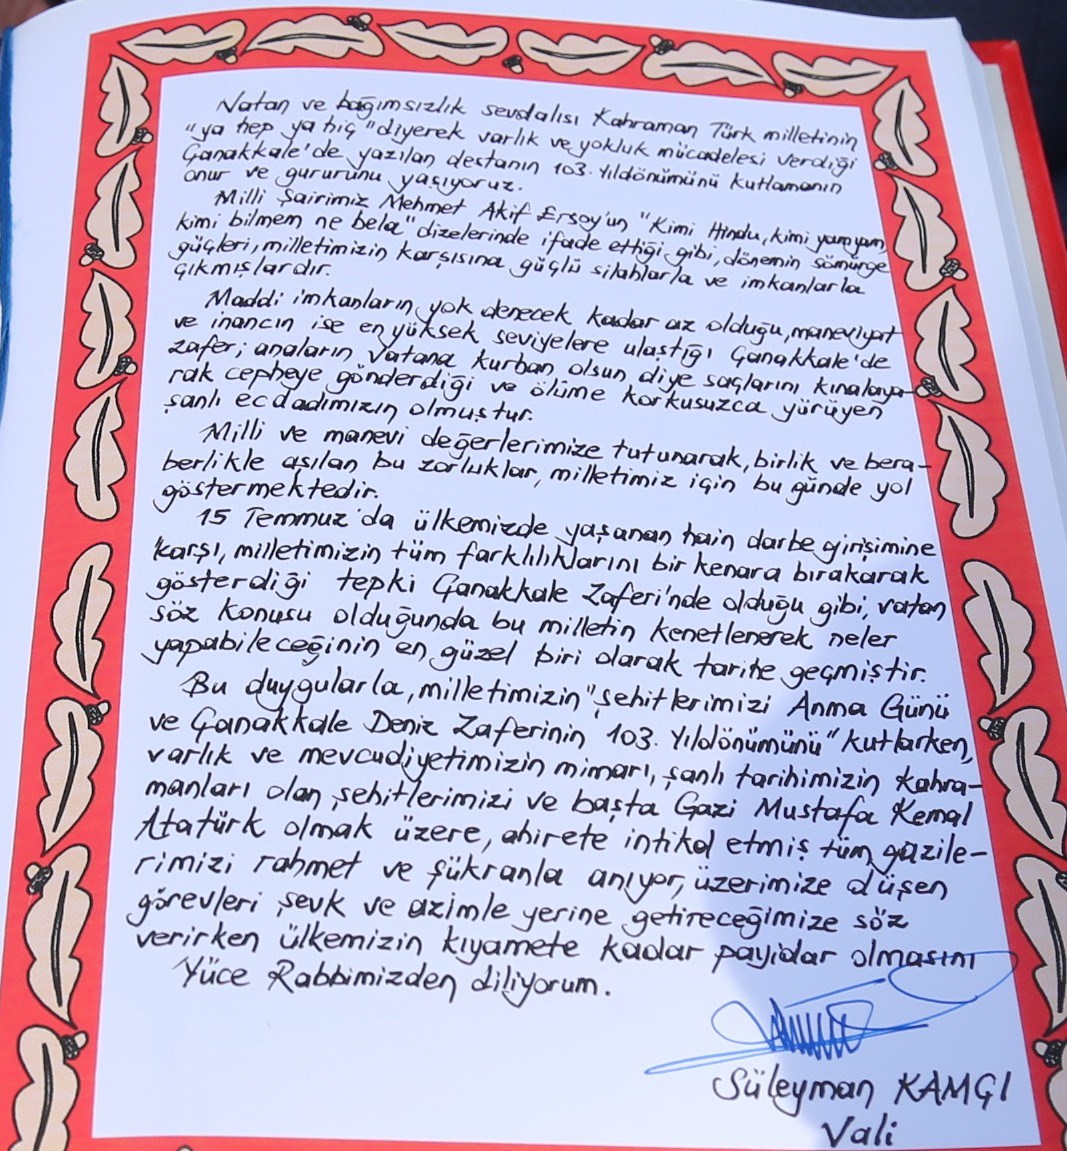 Vatan ve bağımsızlık sevdalısı Kahraman Türk milletinin
"ya hep ya hiç" diyerek varlık ve yokluk mücadelesi verdiği
Çanakkale'de yazılan destanın 103. Yıldönümünü kutlamanın
onur ve gururunu yaşıyoruz.
Milli Şairimiz Mehmet Akif Ersoy'un "Kimi Hindu, kimi yamyam,
kimi bilmem ne bela" dizelerinde ifade ettiği gibi, dönemin sömürge
güçleri, milletimizin karşısına güçlü silahlarla ve imkanlarla
çıkmışlardır.
Maddi imkanların yok denecek kadar az olduğu, maneviyat
ve inancın ise en yüksek seviyelere ulaştığı Çanakkale'de
zafer; anaların Vatana kurban olsun diye saçlarını kınalaya-
rak cepheye gönderdiği ve ölüme korkusuzca yürüyen
şanlı ecdadımızın olmuştur.
Milli ve manevi değerlerimize tutunarak, birlik ve bera-
berlikle aşılan bu zorluklar, milletimiz için bu günde yol
göstermektedir.
15 Temmuz'da ülkemizde yaşanan hain darbe girişimine
karşı, milletimizin tüm farklılıklarını bir kenara bırakarak
gösterdiği tepki Çanakkale Zaferi'nde olduğu gibi, vatan
söz konusu olduğunda bu milletin kenetlenerek neler
yapabileceğinin en güzel biri olarak tarihe geçmiştir.
Bu duygularla, milletimizin "şehitlerimizi Anma Günü
ve Çanakkale Deniz Zaferinin 103. Yıldönümünü" kutlarken,
varlık ve mevcudiyetimizin mimarı, şanlı tarihimizin kahra-
manları olan şehitlerimizi ve başta Gazi Mustafa Kemal
Atatürk olmak üzere, ahirete intikal etmiş tüm gazile-
rimizi rahmet ve şükranla anıyor, üzerimize düşen
görevleri şevk ve azimle yerine getireceğimize söz
verirken ülkemizin kıyamete kadar payidar olmasını
Yüce Rabbimizden diliyorum.
Süleyman KAMÇI
Vali